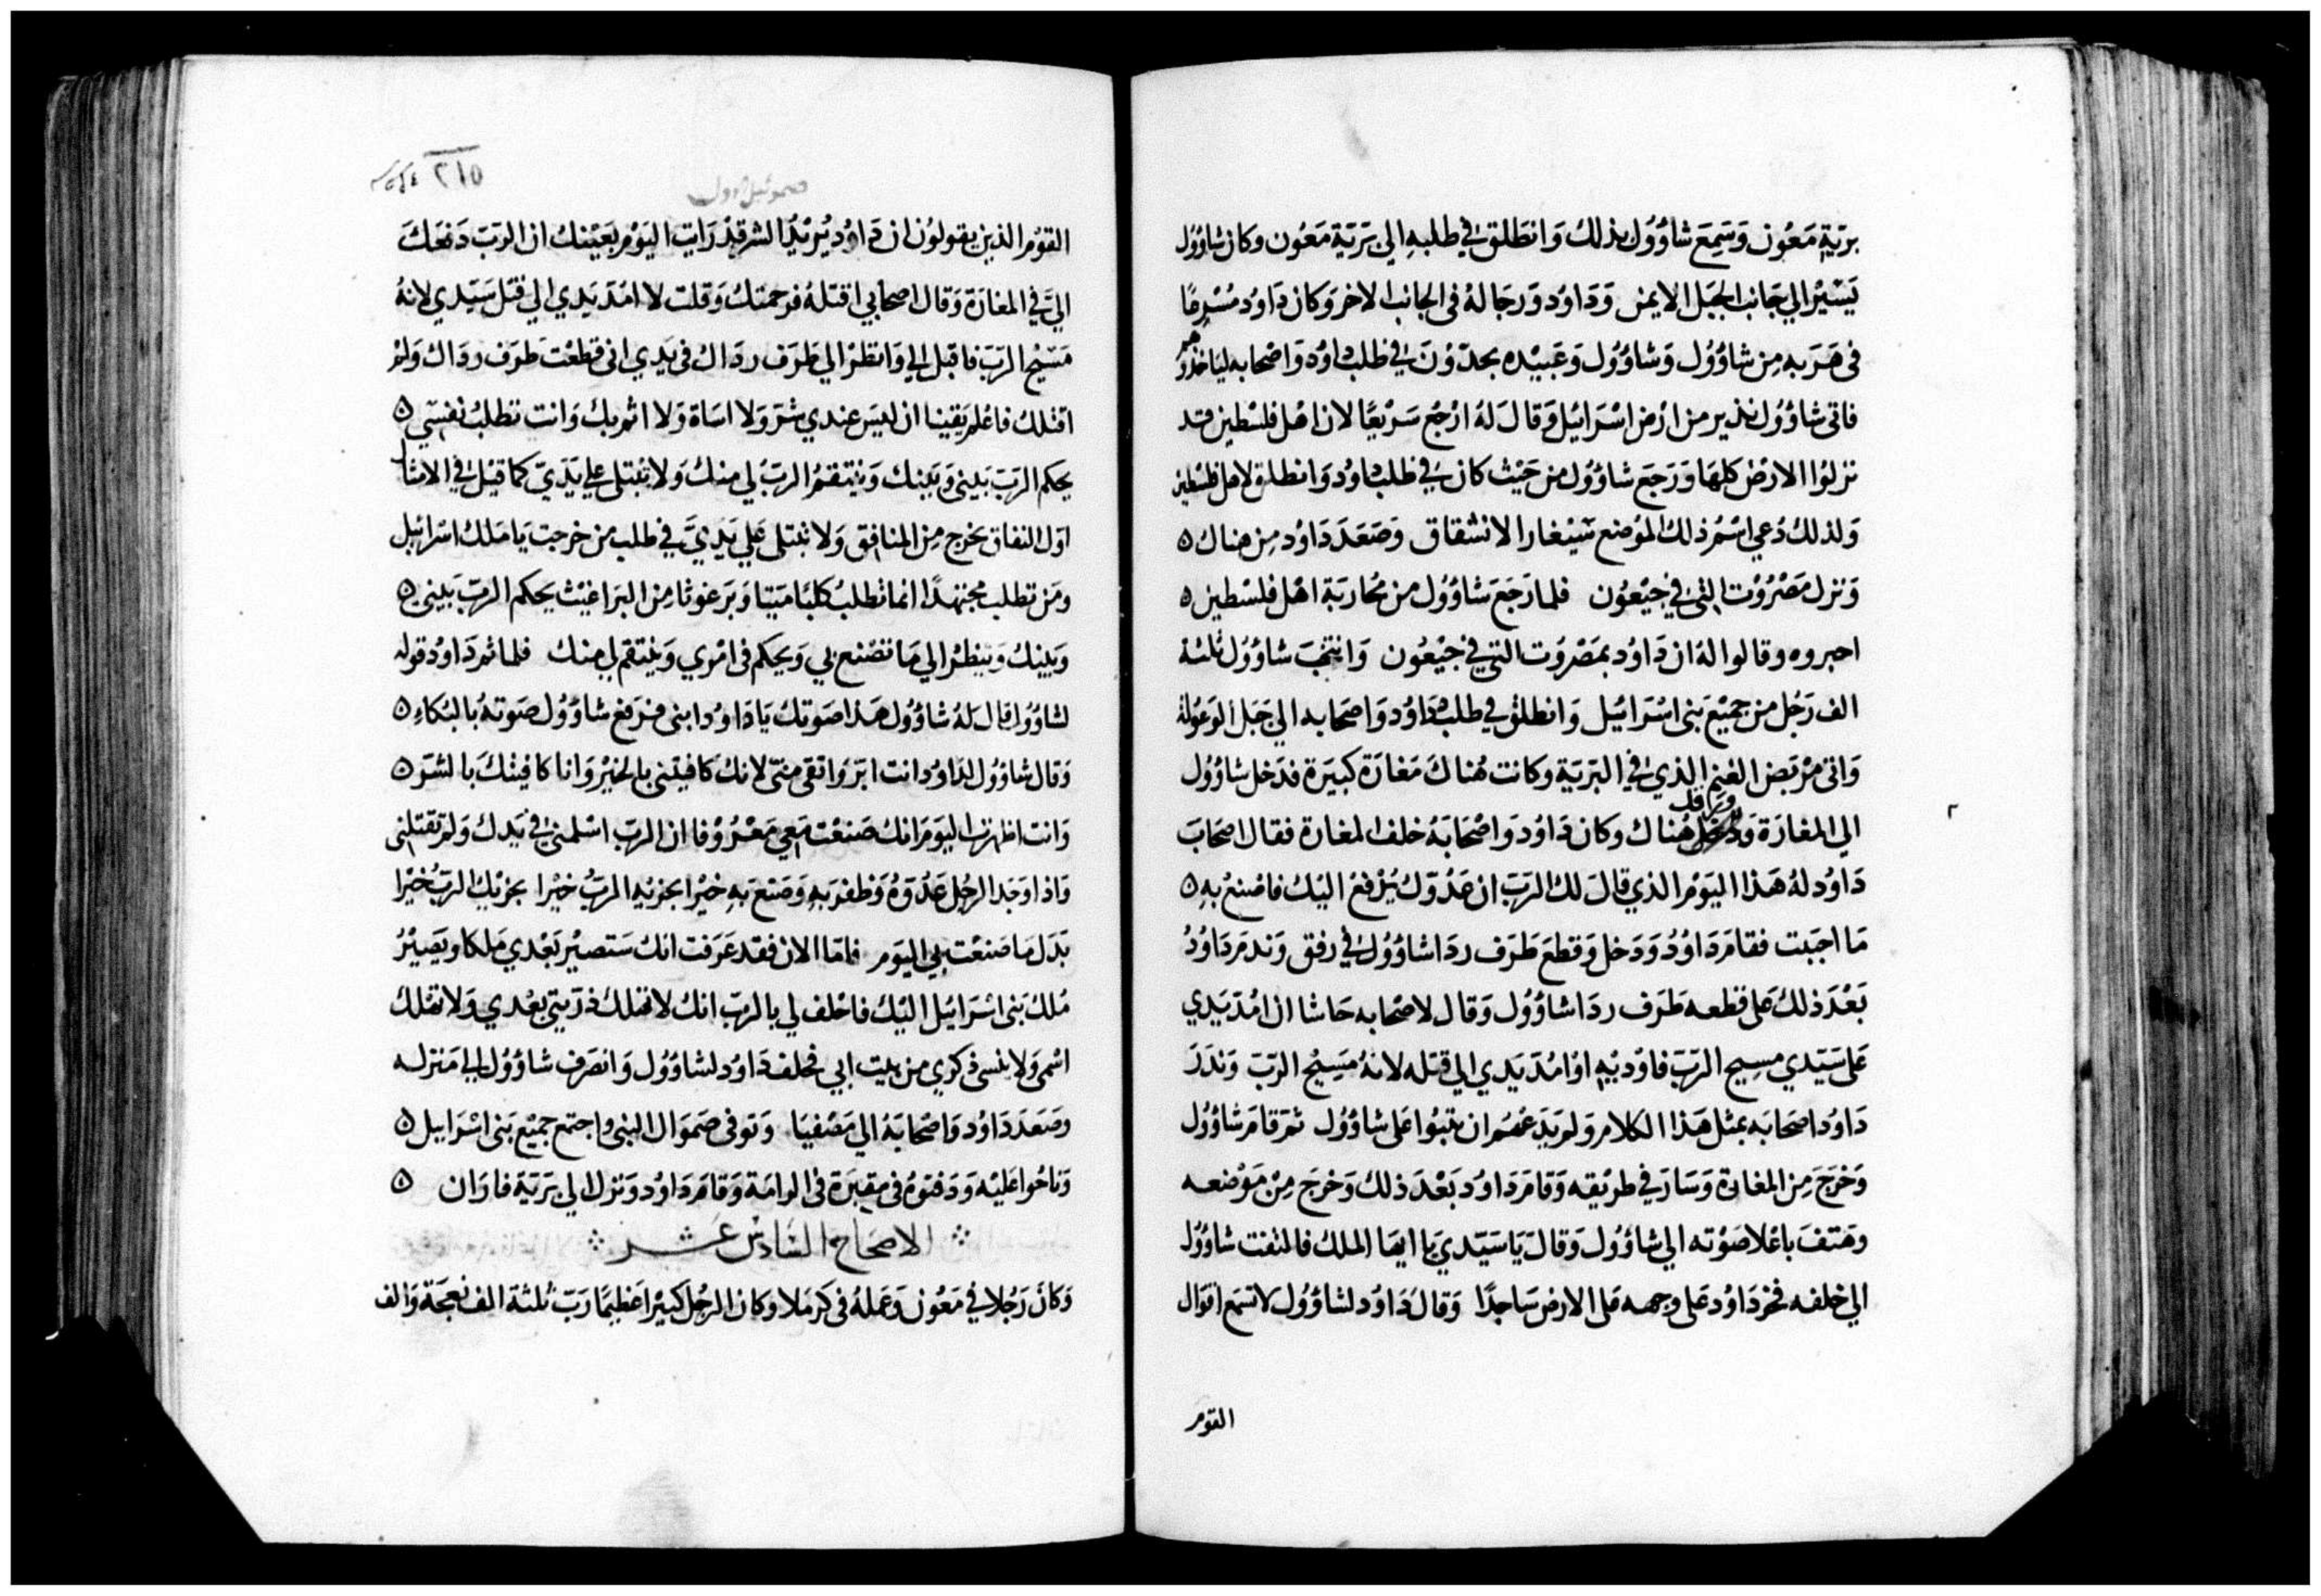 برّيّة مَعُون وَسَمِعَ شاوُول بذلك وَانطَلق في طلبهِ الي بَرّيّة مَعُون وكان شاوُول
يَسْيرُ الي جَانب الجبَل الايمن وَدَاوُد وَرجَالهُ في الجانب الاخر وَكان دَاوُد مُسْرعًا
في هَرَبهِ مِن شاوُول وَشاوُول وَعَبيْده يحدّون في طلب داوُد وَاصْحابه لياخذوهم
فاتي شاوُول نذير من ارْض اسْرَائيل وَقال لهُ ارْجع سَرْيعًا لان اهْل فلسْطين قد
نزلوُا الارْض كلهَا وَرَجَع شاوُول من حَيْث كان في طلب داوُد وَانطلق لاهل فلسْطين
وَلذلك دُعي اسْمُ ذلك الموْضع سَيْغار الانشقاق وَصَعَدَ دَاوُد مِن هناك ٥
وَنزل مَصْرُوْت التي في جيْعُون فلما رَجَعَ شاوُول من محُاربَة اهْل فلسْطين ٥
اخبروه وقالوا لهُ ان دَاوُد بمَصْرُوت التي في جيْعُون وَانتخَبَ شاوُول ثلثة
الف رَجُل من جميْع بني اسْرَائيل وَانطلق في طلب دَاوُد وَاصحَابه الي جَبَل الوَعُولة
وَاتي مرْبَض الغنم الذي في البَرّيَة وكانت هُناكَ مَغارَة كبيرَة فدَخل شاوُول
الي المغارَة وَرقد هُناك وكان دَاوُد وَاصْحَابَهُ خلف المغارة فقال اصحَابَ
دَاوُد لهُ هَذا اليَوْم الذي قالَ لك الرَبّ ان عَدُوّك يُدْفعُ اليْك فاصْنعُ بهِ ٥
مَا احبَبت فقامَ دَاوُدُ وَدَخل وَقطعَ طَرَف ردَا شاوُول في رفق وَندمَ دَاوُدُ
بَعْدَ ذلك عَلي قطعه طَرَف ردَا شاوُول وَقال لاصْحابه حَاشا ان امُدّ يَدي
عَلي سَيّدي مسيح الرَبّ فاوْديْهِ اوْ امُدّ يَدي الي قتله لانهُ مَسِيْح الرَبّ وَندَرَ
دَاوُد اصحَابه بمثل هَذا الكلام وَلم يَدَعْهُم ان يثبُوا عَلي شاوُول ثمَ قامَ شاوُول
وَخرَجَ مِن المغارة وَسَارَ في طريْقه وَقامَ دَاوُد بَعْدَ ذلك وَخرجَ مِن مَوْضعه
وهَتفَ باعْلا صَوْته الي شاوُول وَقالَ يَا سَيّديَ يا ايهَا الملك فالتفت شاوُول
الي خلفه فخر دَاوُد عَلي وجهه عَلي الارض سَاجدًا وَقال دَاوُد لشاوُول لا تسْمَع اقوَال
القوم
٢
٢١٥
صموئيل اول
القوْم الذين يقولوُن ان دَاوُد يُريْدُ الشر قدْ رَايت اليَوْم بعَيْنك ان الرَبّ دَفعَكَ
اليَّ في المغارَة وَقال اصحَابي اقتلهُ فرَحمتك وَقلت لا امُدّ يَدي الي قتل سَيّدي لانهُ
مَسْيْح الرَبّ فاقبل الي وَانظرْ الي طَرَف ردَاك في يَدي اني قطعْت طَرَف ردَاك وَلمْ
اقتلك فاعْلم يَقينا ان ليسَ عندي شرَ وَلا اسَاة وَلا اثم بك وَانت تطلبُ نفسي ٥
يحكم الرَبّ بَيني وَبَينك وَينتقمُ الرَبّ لي منكُ وَلا تبْتلي علي يَدَيّ كما قيْل في الامثال
اوّل النفاق يخرج مِن المنافق وَلا تبتلي عَلي يَدَيَّ في طلب من خرجت يَا مَلك اسْرَائيل
ومَن تطلب مجتهدًا انما تطلبُ كلبًا مَيتا وَبَرغوثا مِن البَراغيث يَحكم الرَبّ بَيني ٥
وَبينكُ وَينظرُ الي مَا تصْنع بي وَيحكم في امْري وَينتقم لي منك فلما تم دَاوُد قوله
لشاوُول قال لهُ شاوُول هَذا صَوتكُ يَا دَاوُد ابني فرَفع شاوُول صَوتهُ بالبُكاءِ ٥
وَقال شاوُول لدَاوُد انت ابَرّ وَاتقي منيّ لانك كافيتني بالخيْر وَانا كافيتكَ بالشرّ ٥
وَانت اظهرتَ اليَومَ انك صَنعْت مَعي مَعْرُوْفا ان الرَبّ اسْلمني في يَدك وَلم تقتلني
وَاذا وَجَد الرجُل عَدُوَهُ وَظفرَ بهِ وَصَنعَ بَهِ خيْرًا يجزيْهِ الرَبُّ خيْرا يجزيْك الرَبّ خيْرا
بَدَل مَا صَنعْت بي اليَوم فامّا الان فقد عَرَفت انك سَتصيْر بَعْدي مَلكا ويَصيْرُ
مُلك بَني اسْرَائيل اليْك فاحْلف لي بالرَبّ انك لا تهلك ذرّيتي بعْدي وَلا تهْلك
اسْمي وَلا ينسي ذكري من بيت ابي فحلف دَاوُد لشاوُول وَانصَرف شاوُول الي مَنزله
وصَعَدَ دَاوُد وَاصْحَابَهُ الي مَصْفيَا وَتوفي صَموَال النبي وَاجتمع جميْع بَني اسْرَاييل ٥
وَناحُوا عَليْه وَدَفنوُهُ في مقبَرَة في الرامَة وَقامَ دَاوُد وَنزل الي بَرَيّة فاوَان ٥
الاصحَاح السَّادس عَشر
وَكانَ رَجُلا في مَعُون وَعَملهُ في كَرمَلا وكان الرجُل كبيْرا عَظيمًا رَبّ ثلثة الف نعجَة وَالف